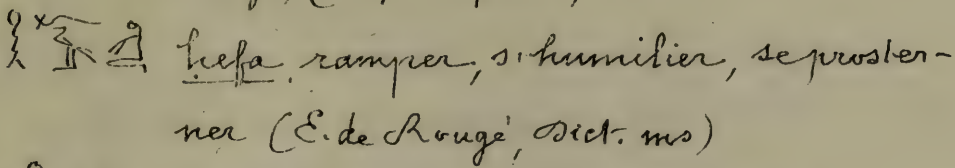 hefa, ramper, s'humilier, se proster-
ner (E. de Rougé, Dict. ms)